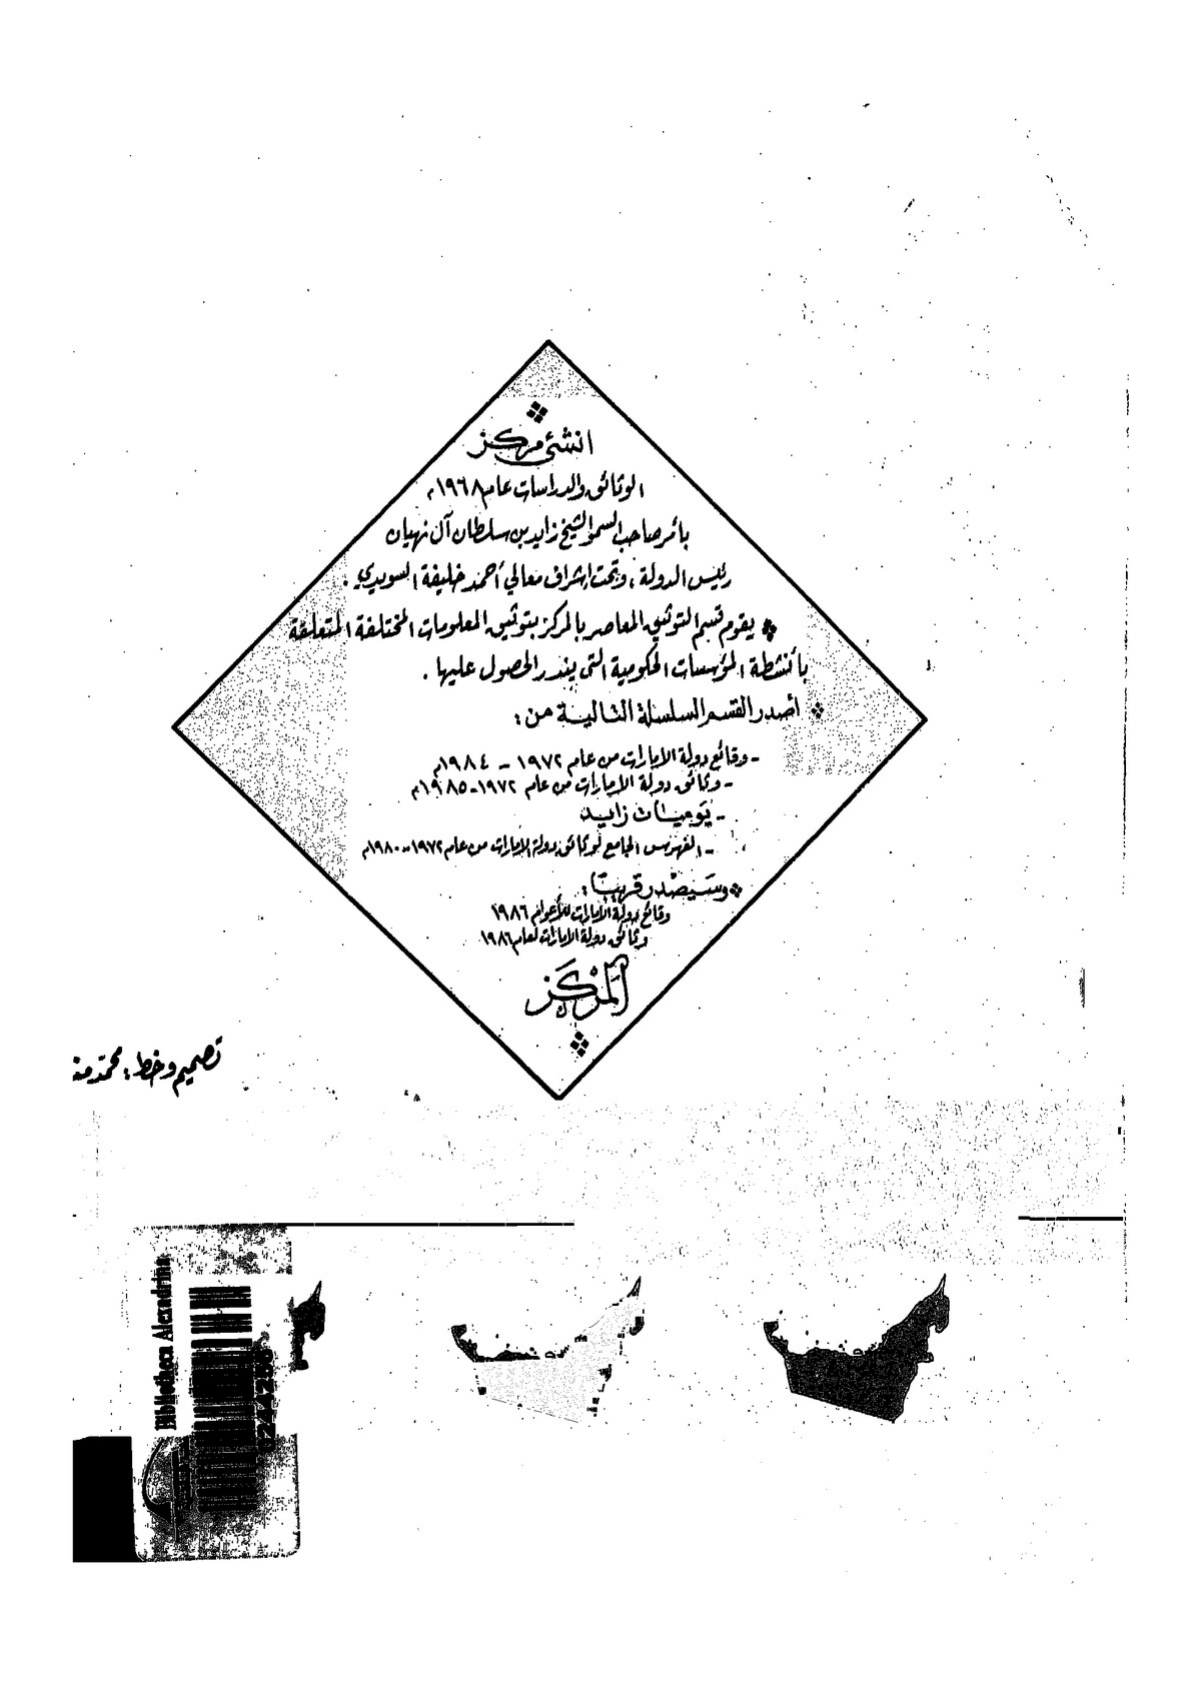 انشئ مركز
الوثائق والدراسات عام ١٩٦٨م
بأمر صاحب السمو الشيخ زايد بن سلطان آل نهيان
رئيس الدولة، وتحت إشراف معالي أحمد خليفة السويدي .
يقوم قسم التوثيق المعاصر بالمركز بتوثيق المعلومات المختلفة المتعلقة
بأنشطة المؤسسات الحكومية التي يندر الحصول عليها .
أصدر القسم السلسلة التالية من :
- وقائع دولة الامارات من عام ١٩٧٢ - ١٩٨٤م
- وثائق دولة الامارات من عام ١٩٧٢-١٩٨٥م
- يوميات زايد
- الفهرس الجامع لوثائق دولة الامارات من عام ١٩٧٢-١٩٨٠م
وسيصدر قريبًا :
وقائع دولة الامارات للأعوام ١٩٨٦
وثائق دولة الامارات لعام ١٩٨٦
المركز
تصميم وخط : محمد
Bibliotheca Alexandrina